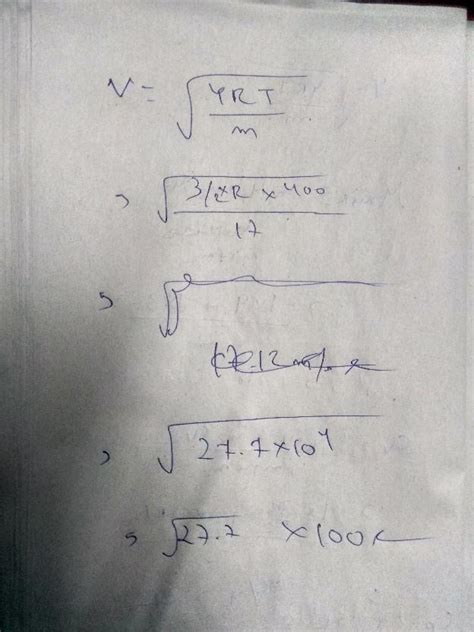 V = √(γRT/m)
, √(3/2 × R × 400/17)
, √
, √(27.7 × 10⁴)
, √27.7 × 100